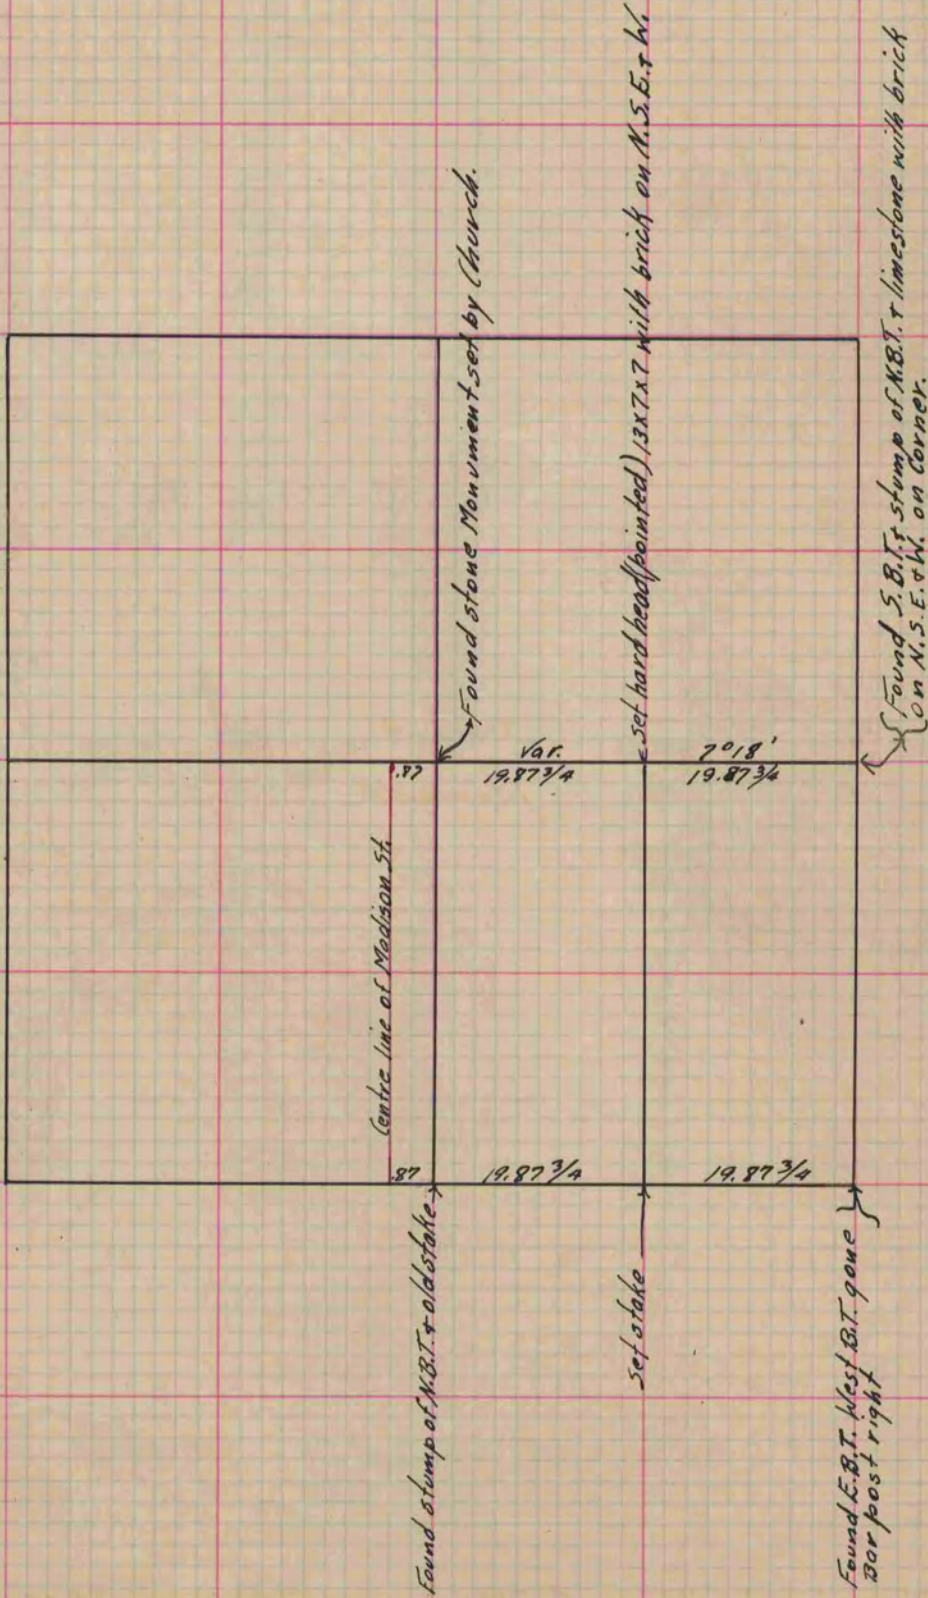 Found stone Monument set by Church.
set hard head (pointed) 13x7x7 with brick on N.S.E. + W.
{Found S.B.T. + stump of N.B.T. + limestone with brick
on N.S.E. + W. on Corner.
Var.
19.87 3/4
7°18'
19.87 3/4
.87
Centre line of Madison St.
.87
19.87 3/4
19.87 3/4
Found stump of N.B.T. + old stake
set stake
Found E.B.T. West B.T. gone
Bar post right